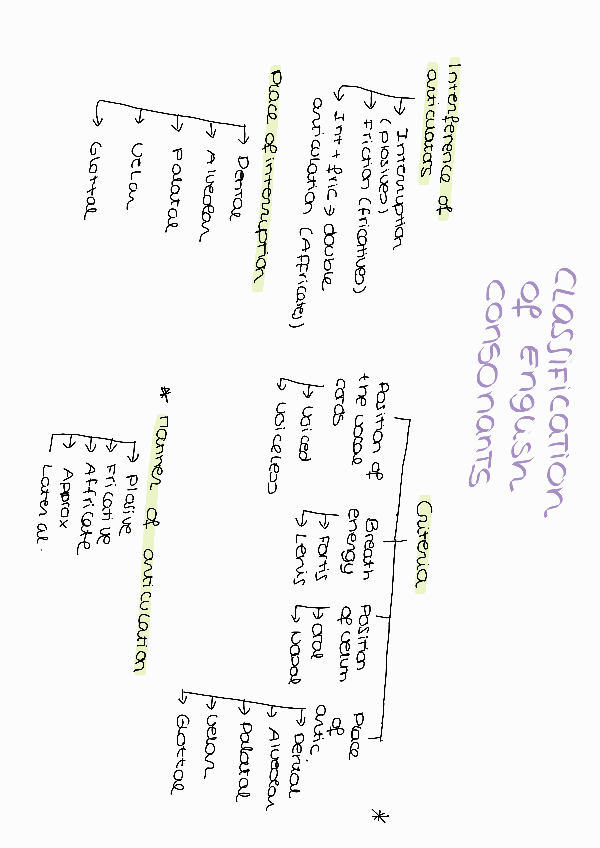 Classification
of English
consonants
Interference of
articulators
Interruption
(plosives)
Friction (fricatives)
Int + fric → double
articulation (Affricates)
Place of interruption
Dental
Alveolar
Palatal
Velar
Glottal
Criteria
Position of
the vocal
cords
Voiced
Voiceless
Breath
energy
Fortis
Lenis
Position
of velum
Oral
Nasal
Place
of
artic
Dental
Alveolar
Palatal
Velar
Glottal
*
* Manner of articulation
Plosive
Fricative
Affricate
Approx
Lateral.